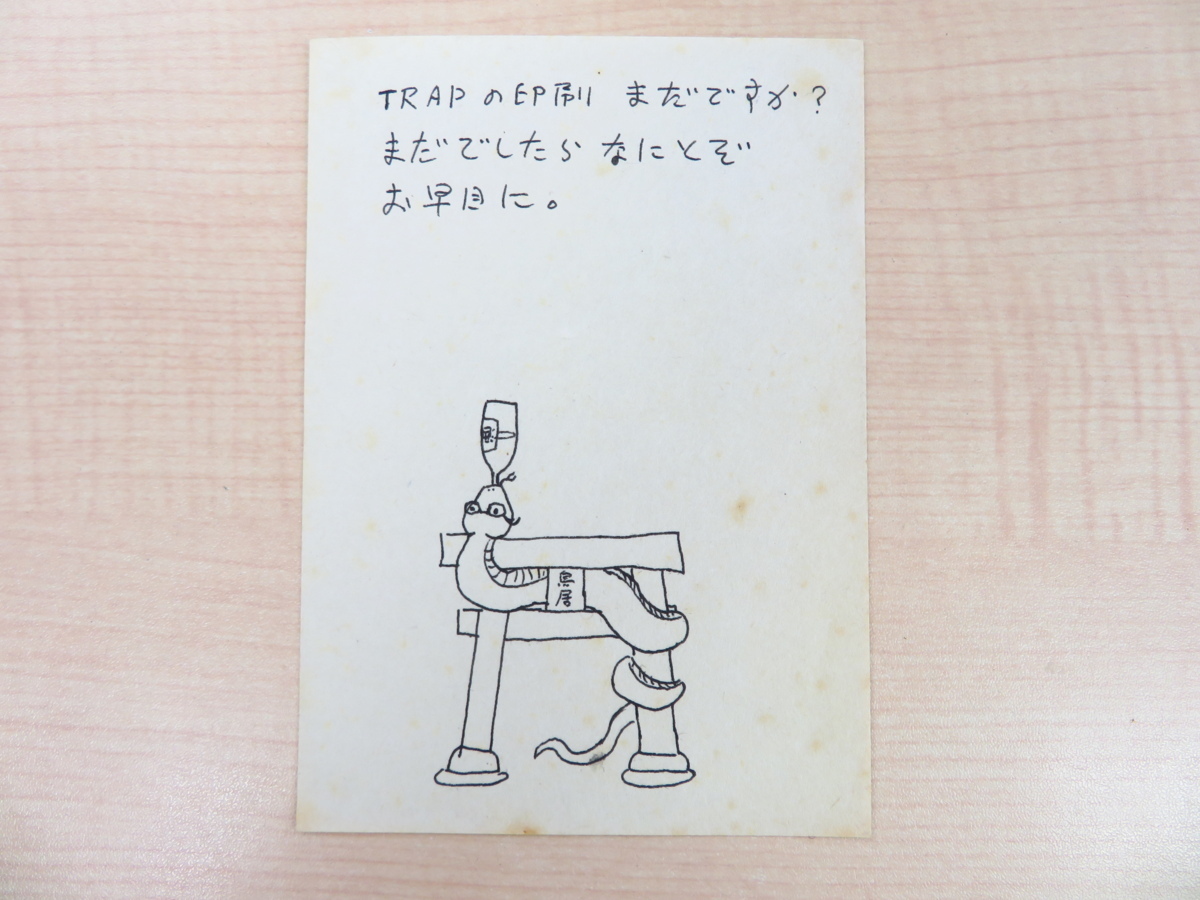 TRAPの印刷 まだですか?
まだでしたら なにとぞ
お早目に。
鳥居